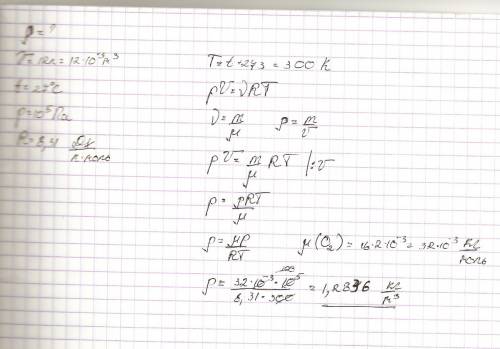 ρ = ?
V = 12л = 12·10⁻³ м³
t = 27°C
p = 10⁵ Па
R = 8,31 Дж/К·моль
T = t + 273 = 300 K
pV = νRT
ν = m/μ ρ = m/V
pV = m/μ RT |:V
p = ρRT/μ
ρ = μp/RT μ(O₂) = 16·2·10⁻³ = 32·10⁻³ кг/моль
ρ = 32·10⁻³·10⁵/8,31·300 = 1,2836 кг/м³